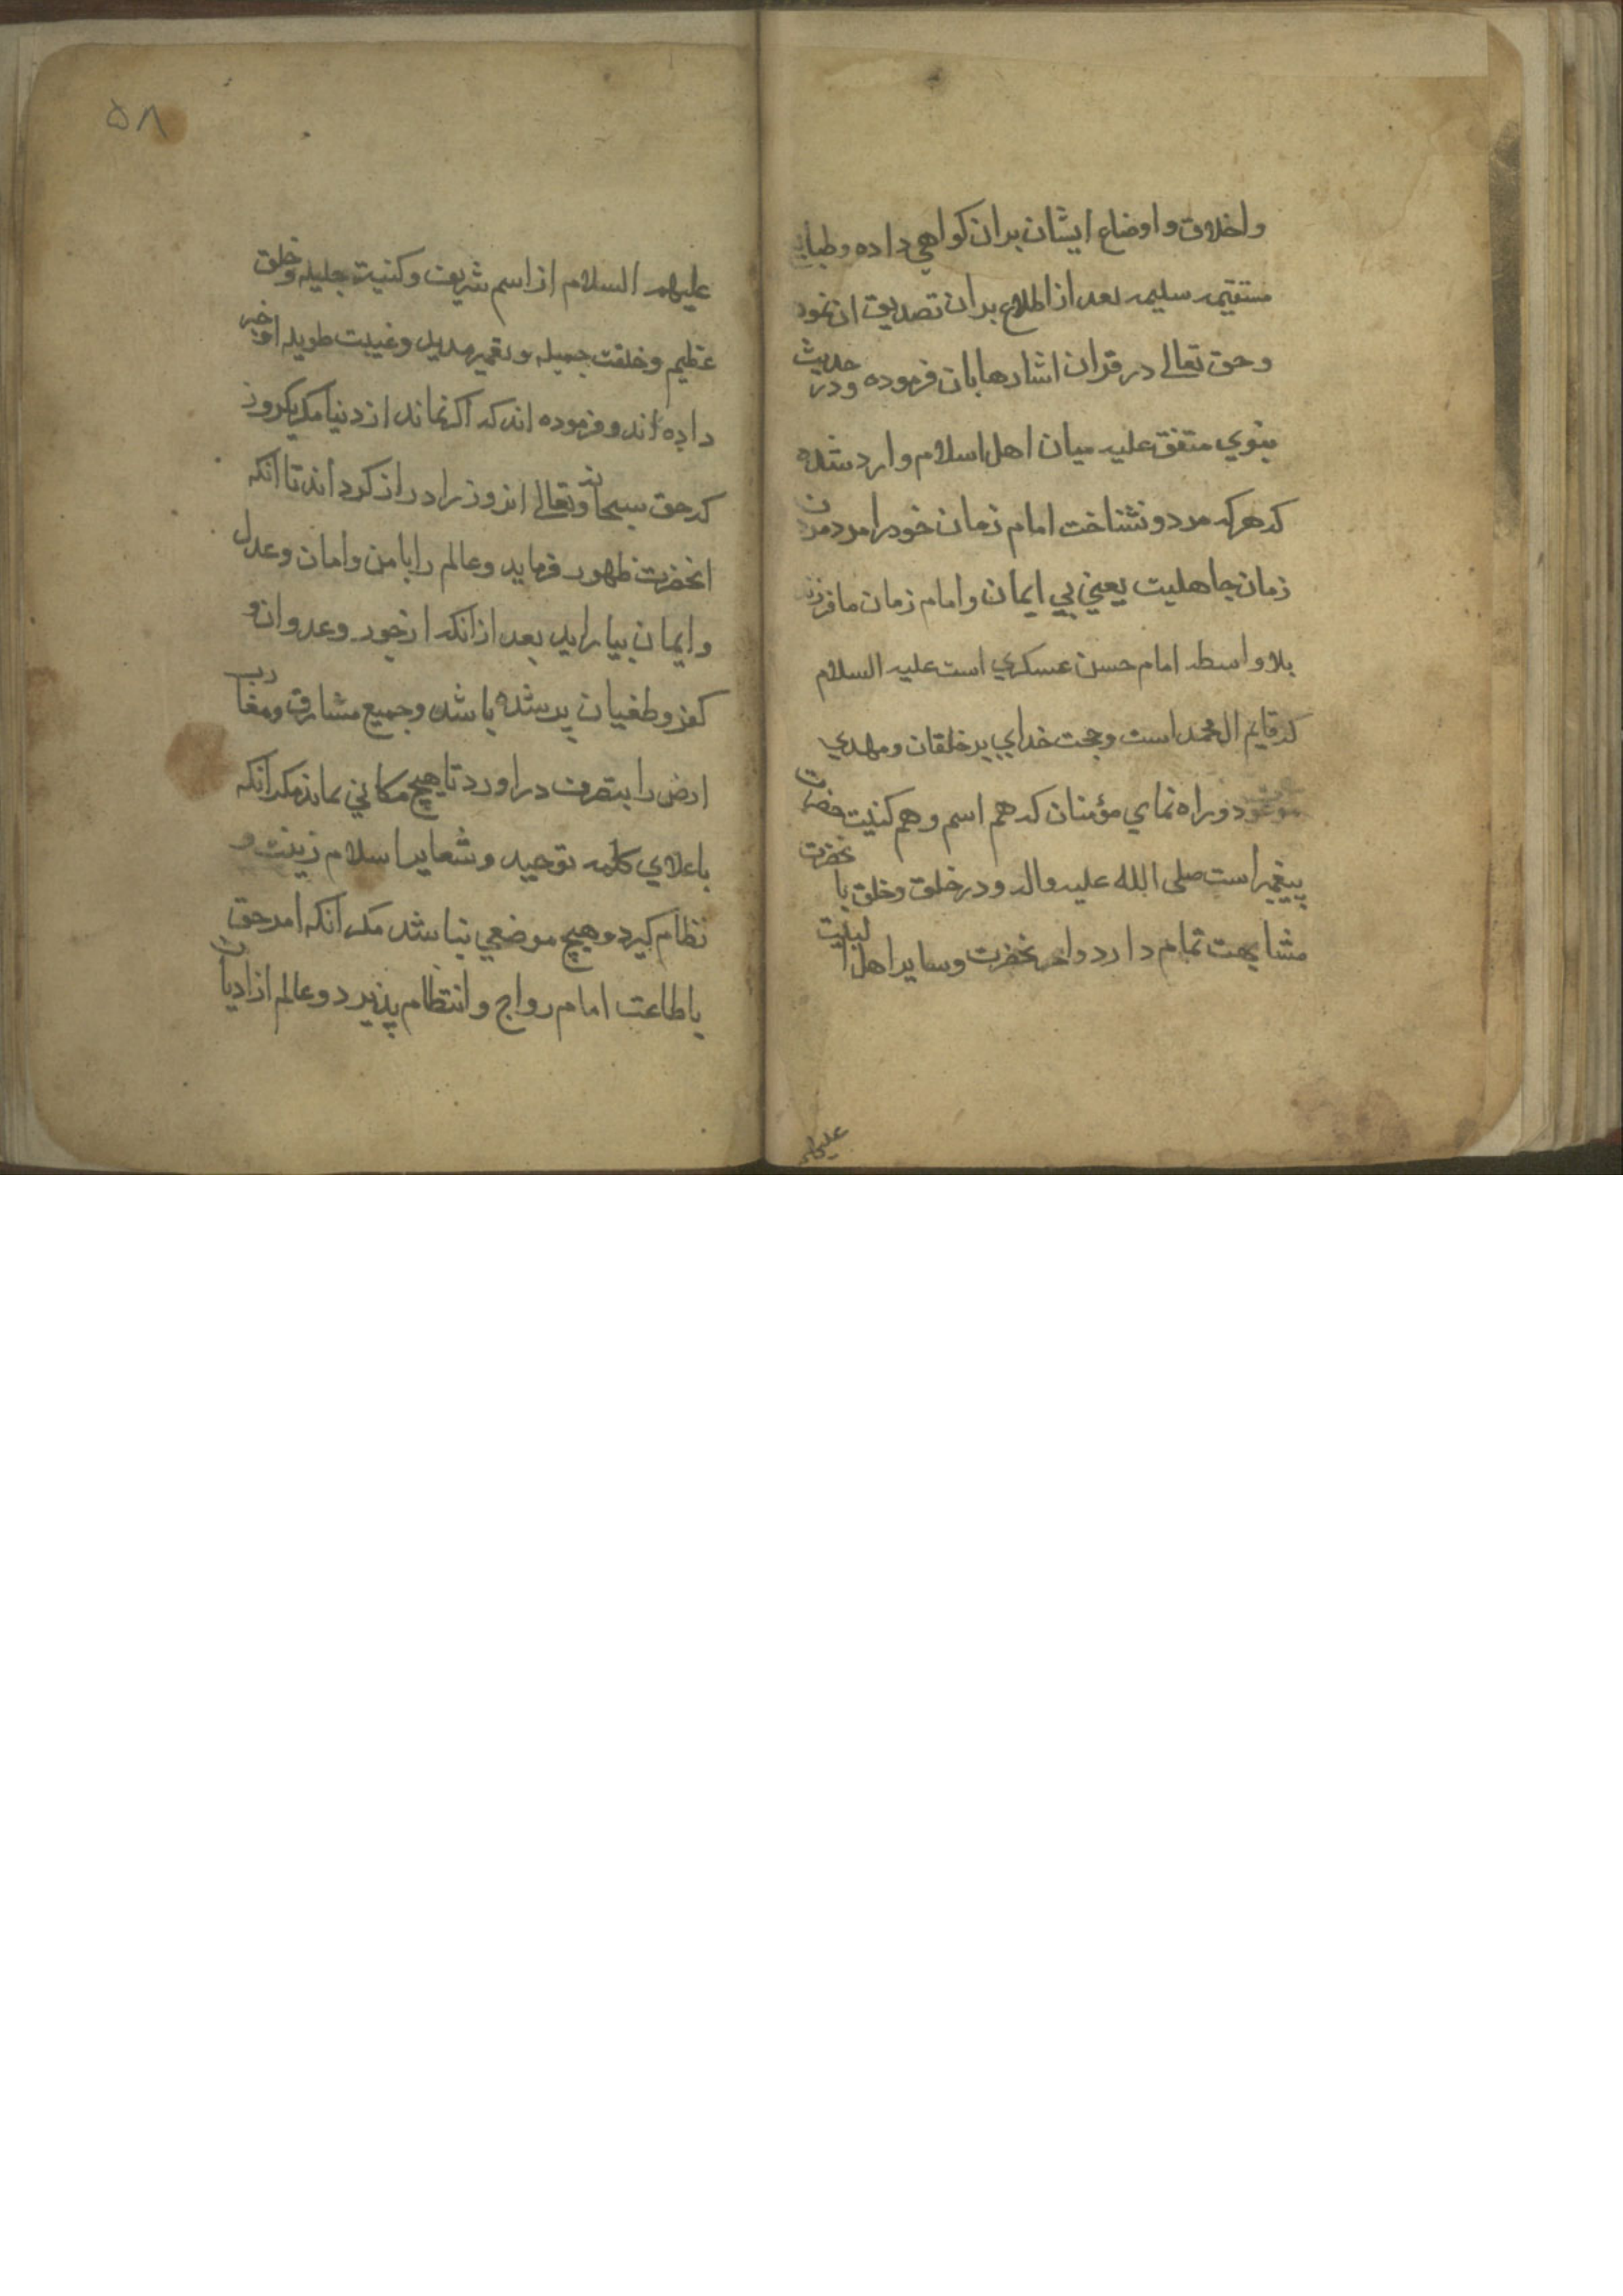 واخلاق و اوضاع ایشان بران کواهي داده و طبایع
مستقیمه سلیمه بعد از اطلاع بران تصدیق ان نموده
و حق تعالی در قران اشارها بان فرموده و در حدیث
نبوي متفق علیه میان اهل اسلام وارد شده
که هر که مرد و نشناخت امام زمان خود را مرد مردن
زمان جاهلیت یعني بي ایمان و امام زمان ما فرزند
بلا واسطه امام حسن عسکري است علیه السلام
که قایم ال محمد است و حجت خداي بر خلقان و مهدي
موعود و راه نماي مؤمنان که هم اسم و هم کنیت حضرت
پیغمبر است صلی الله علیه واله و در خلق و خلق با نحضرت
مشابهت تمام دارد و انحضرت و سایر اهل البیت
علیهم
۵۸
علیهم السلام از اسم شریف و کنیت جلیله و خلق
عظیم و خلقت جمیله و تعمیر مدید و غیبت طویله او خبر
داده اند و فرموده اند که اکر نماند از دنیا مکر یکروز
که حق سبحانه و تعالی انروز را دراز کرداند تا انکه
انحضرت ظهور فرماید و عالم را با من و امان و عدل
و ایمان بیاراید بعد از انکه از جور و عدوان و
کفر و طغیان پر شده باشد و جمیع مشارق و مغارب
ارض را بتصرف دراورد تا هیچ مکاني نماند مکر انکه
باعلاي کلمه توحید و شعایر اسلام زینت و
نظام کیرد و هیچ موضعي نباشد مکر انکه امر حق
باطاعت امام رواج و انتظام پذیرد و عالم از ادیان